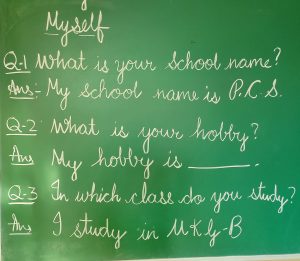 Myself
Q-1 What is your School name?
Ans:- My school name is P.C.S.
Q-2 What is your hobby?
Ans My hobby is ______.
Q-3 In which class do you study?
Ans I study in UKG-B